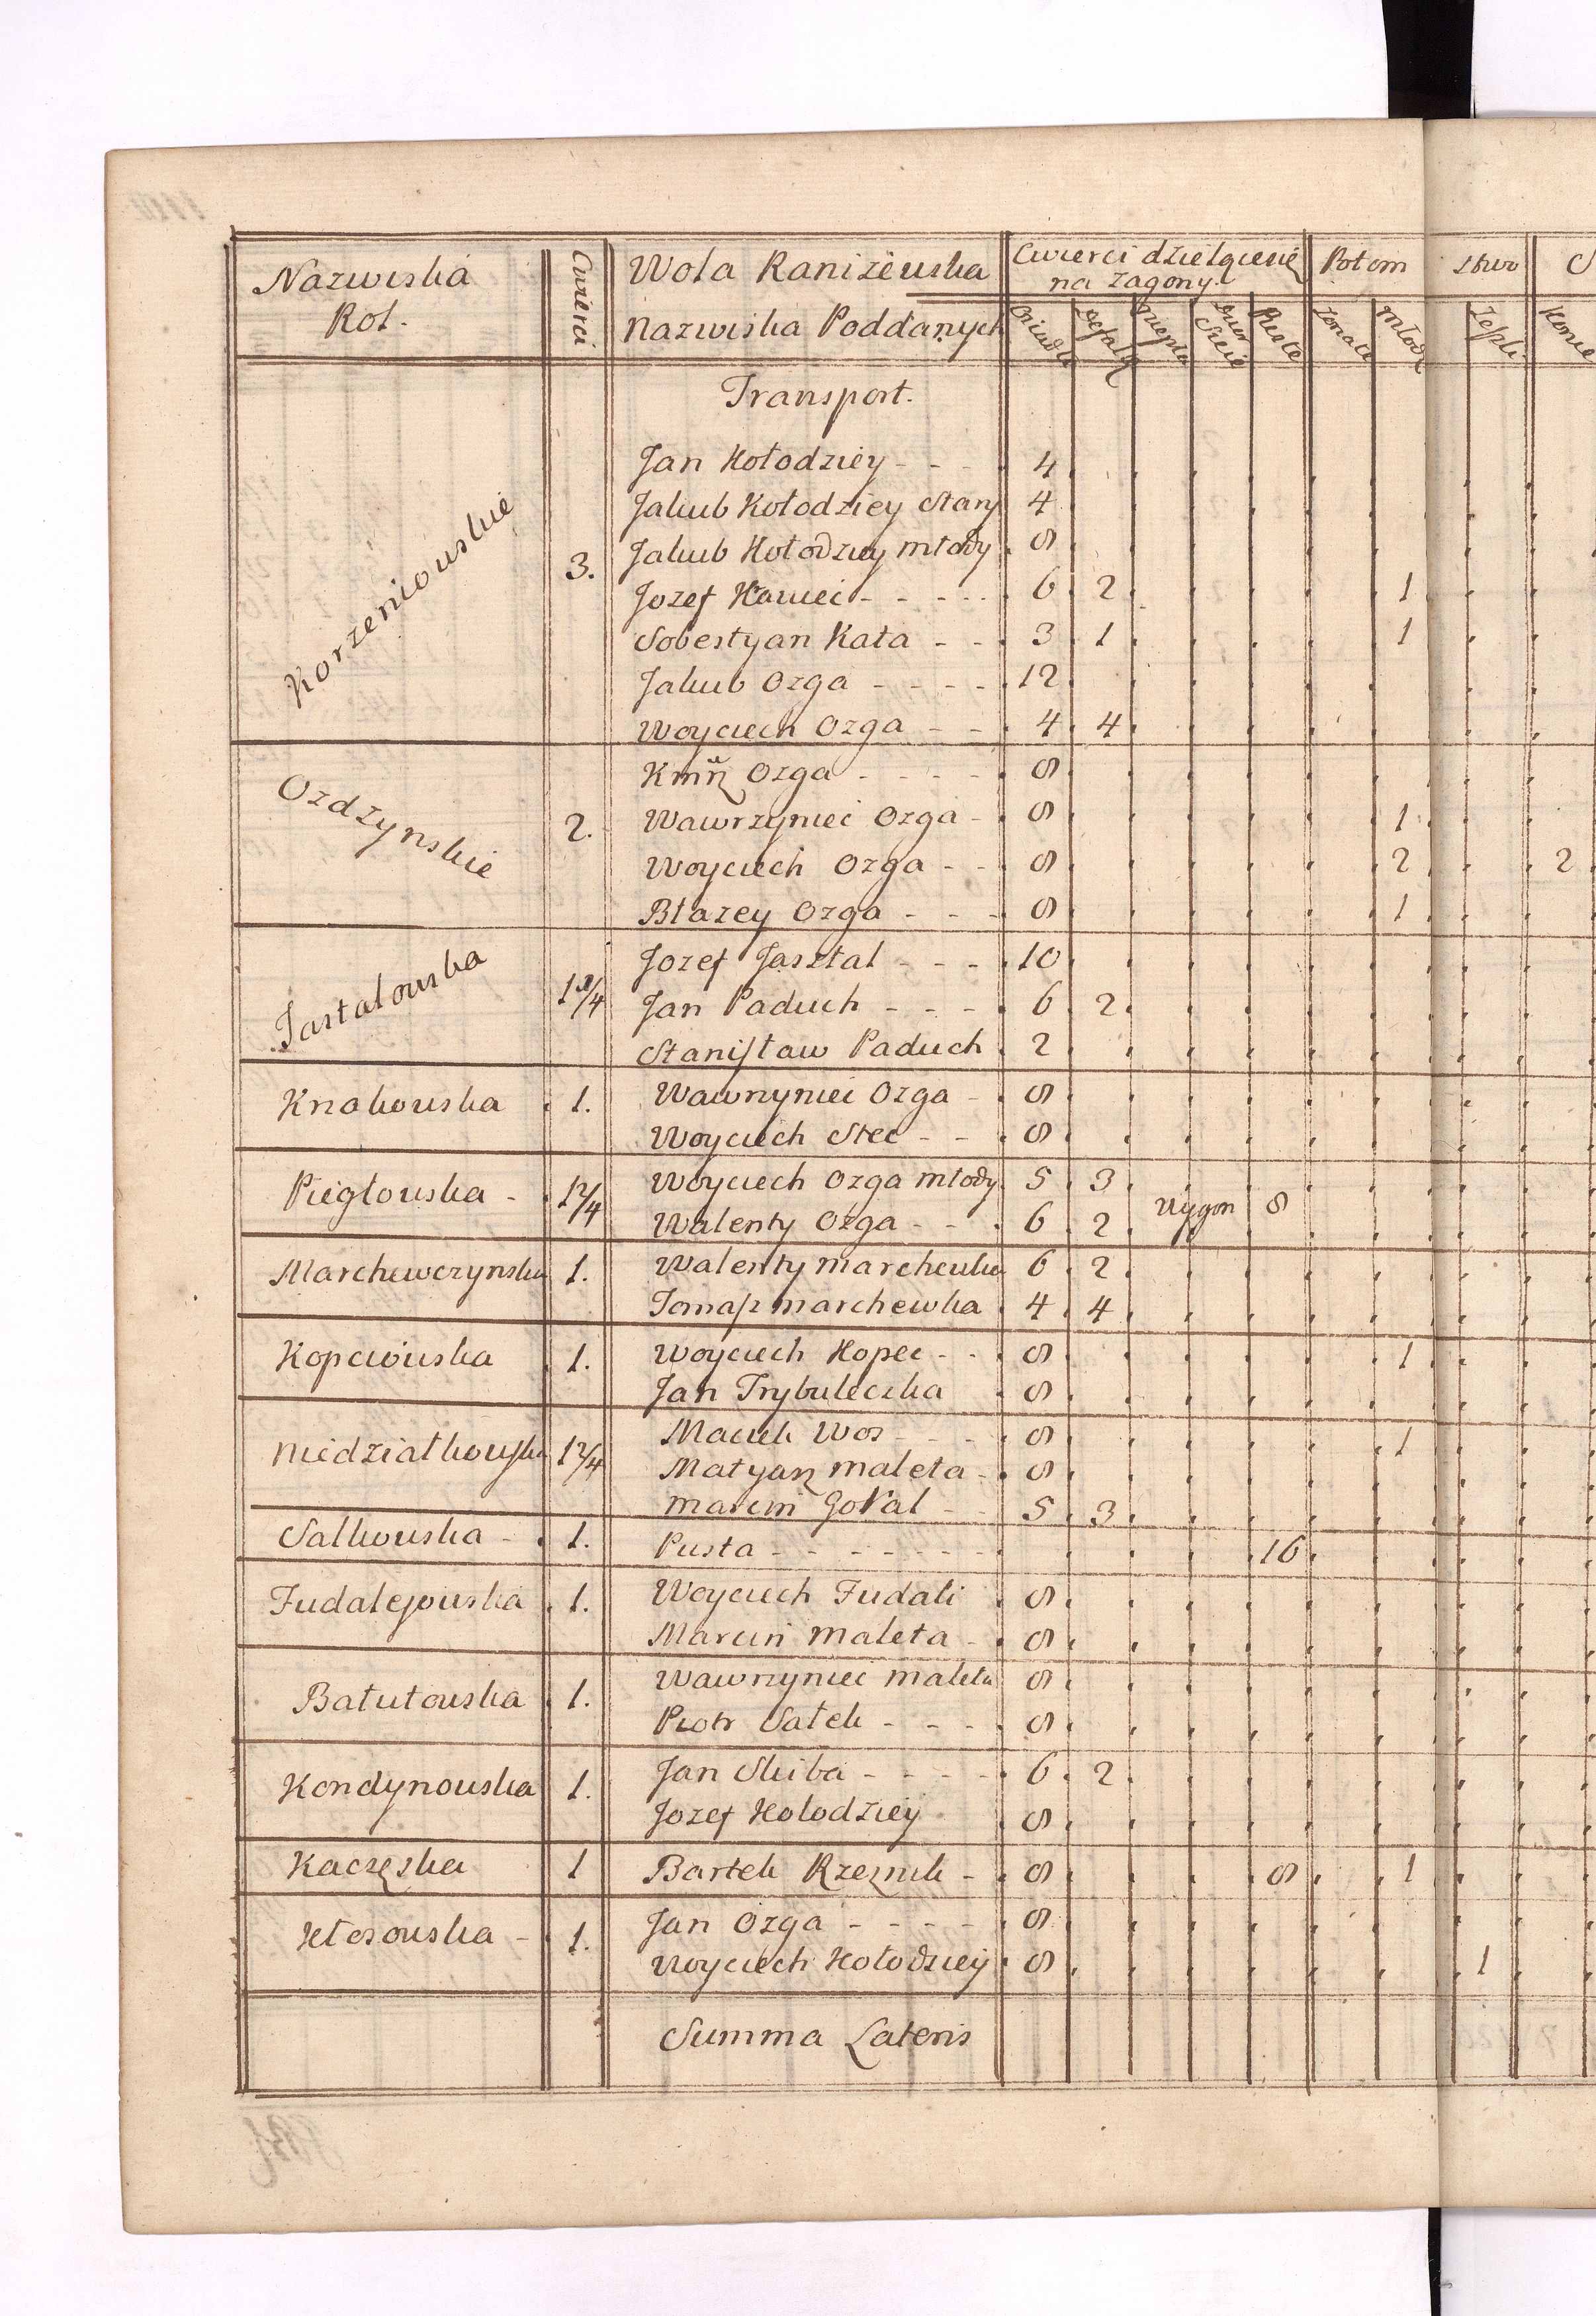 Nazwiska Rol. Cwierci Wola Raniżewska Cwierci dzielącesię na zagony. Potom stwo
Nazwiska Poddanych Osiadłe Puste żonate młode Konie
Transport.
Korzeniowskie 3. Jan Kołodziey - - 4
Jakub Kołodziey Stary 4
Jakub Kołodziey młody 8
Jozef - - - - 6 2 1
Sobestyan Kata - - 3 1 1
Jakub Ozga - - - - 12
Woyciech Ozga - - 4 4
Ozdzynskie 2. Ozga - - - - 8
Wawrzyniec Ozga - 8 1
Woyciech Ozga - - 8 2 2
Błazey Ozga - - - 8 1
Jastalowska Jozef Jasztal - - - 10
Jan Paduch - - - 6 2
Stanisław Paduch 2
Knakowska 1. Wawrzyniec Ozga - 8
Woyciech Stec - - 8
Piegłowska - 1 2/4 Woyciech Ozga młody 5 3
Walenty Ozga - - 6 2 Wygon 8
Marchewczynska 1. Walenty marchewka 6 2
Tomasz marchewka 4 4
Kopciowska 1. Woyciech Kopec - - 8 1
Jan Trybuleczka 8
Niedziałkowska 1 2/4 Maciek Wos - - - 8 1
Matyasz maleta - 8
marcin - - 5 3
Salkowska - 1. Pusta - - - - - - - 16
Fudalejowska 1. Woyciech Fudali 8
Marcin maleta - 8
Batutowska 1. Wawrzyniec maleta 8
Piotr Sałek - - - 8
Kondynowska 1. Jan Skiba - - - - 6 2
Jozef Kolodziey 8
Kaczęska 1 Bartek Rzeznik - 8 8 1
Kłosowska - 1. Jan Ozga - - - - 8
Woyciech Kołodziey 8 1
Summa Lateris